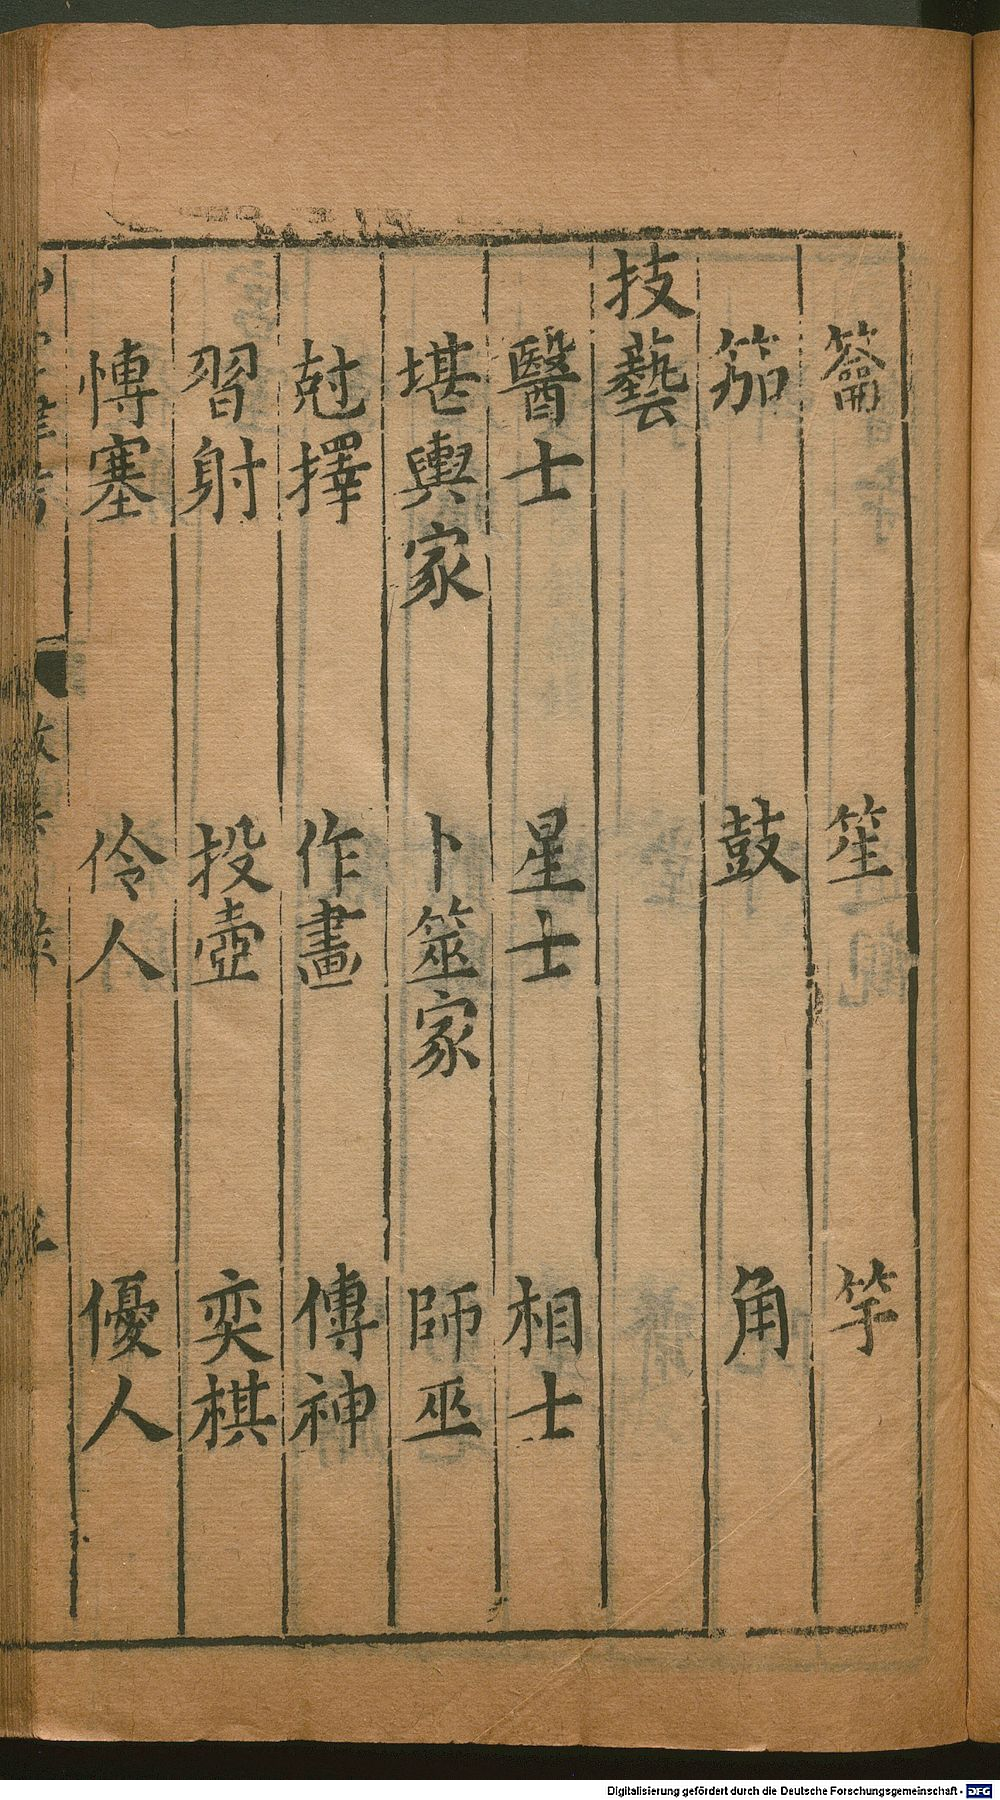 籥 笙 竽
笳 鼓 角
技藝
醫士 星士 相士
堪輿家 卜筮家 師巫
尅擇 作畫 傳神
習射 投壺 奕棋
愽塞 伶人 優人
Digitalisierung gefördert durch die Deutsche Forschungsgemeinschaft - DFG